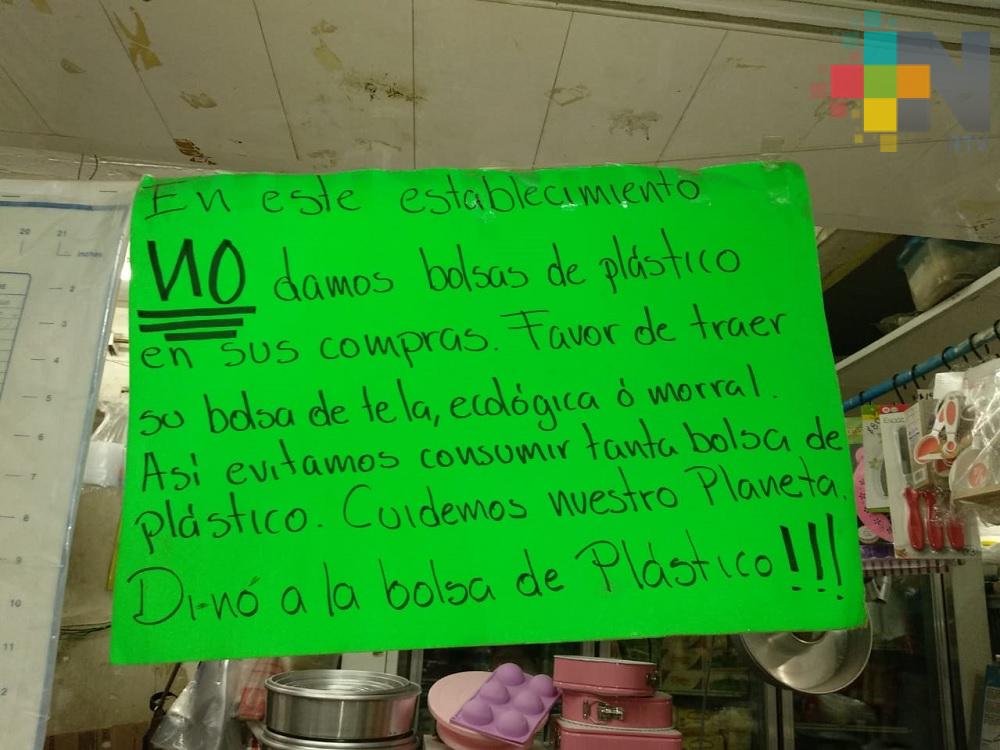 En este establecimiento
NO damos bolsas de plástico
en sus compras. Favor de traer
su bolsa de tela, ecológica ó morral.
Así evitamos consumir tanta bolsa de
plástico. Cuidemos nuestro Planeta.
Di-nó a la bolsa de Plástico!!!
N
NTV
20 21
inches
2
3
4
5
6
7
8
9
10
11